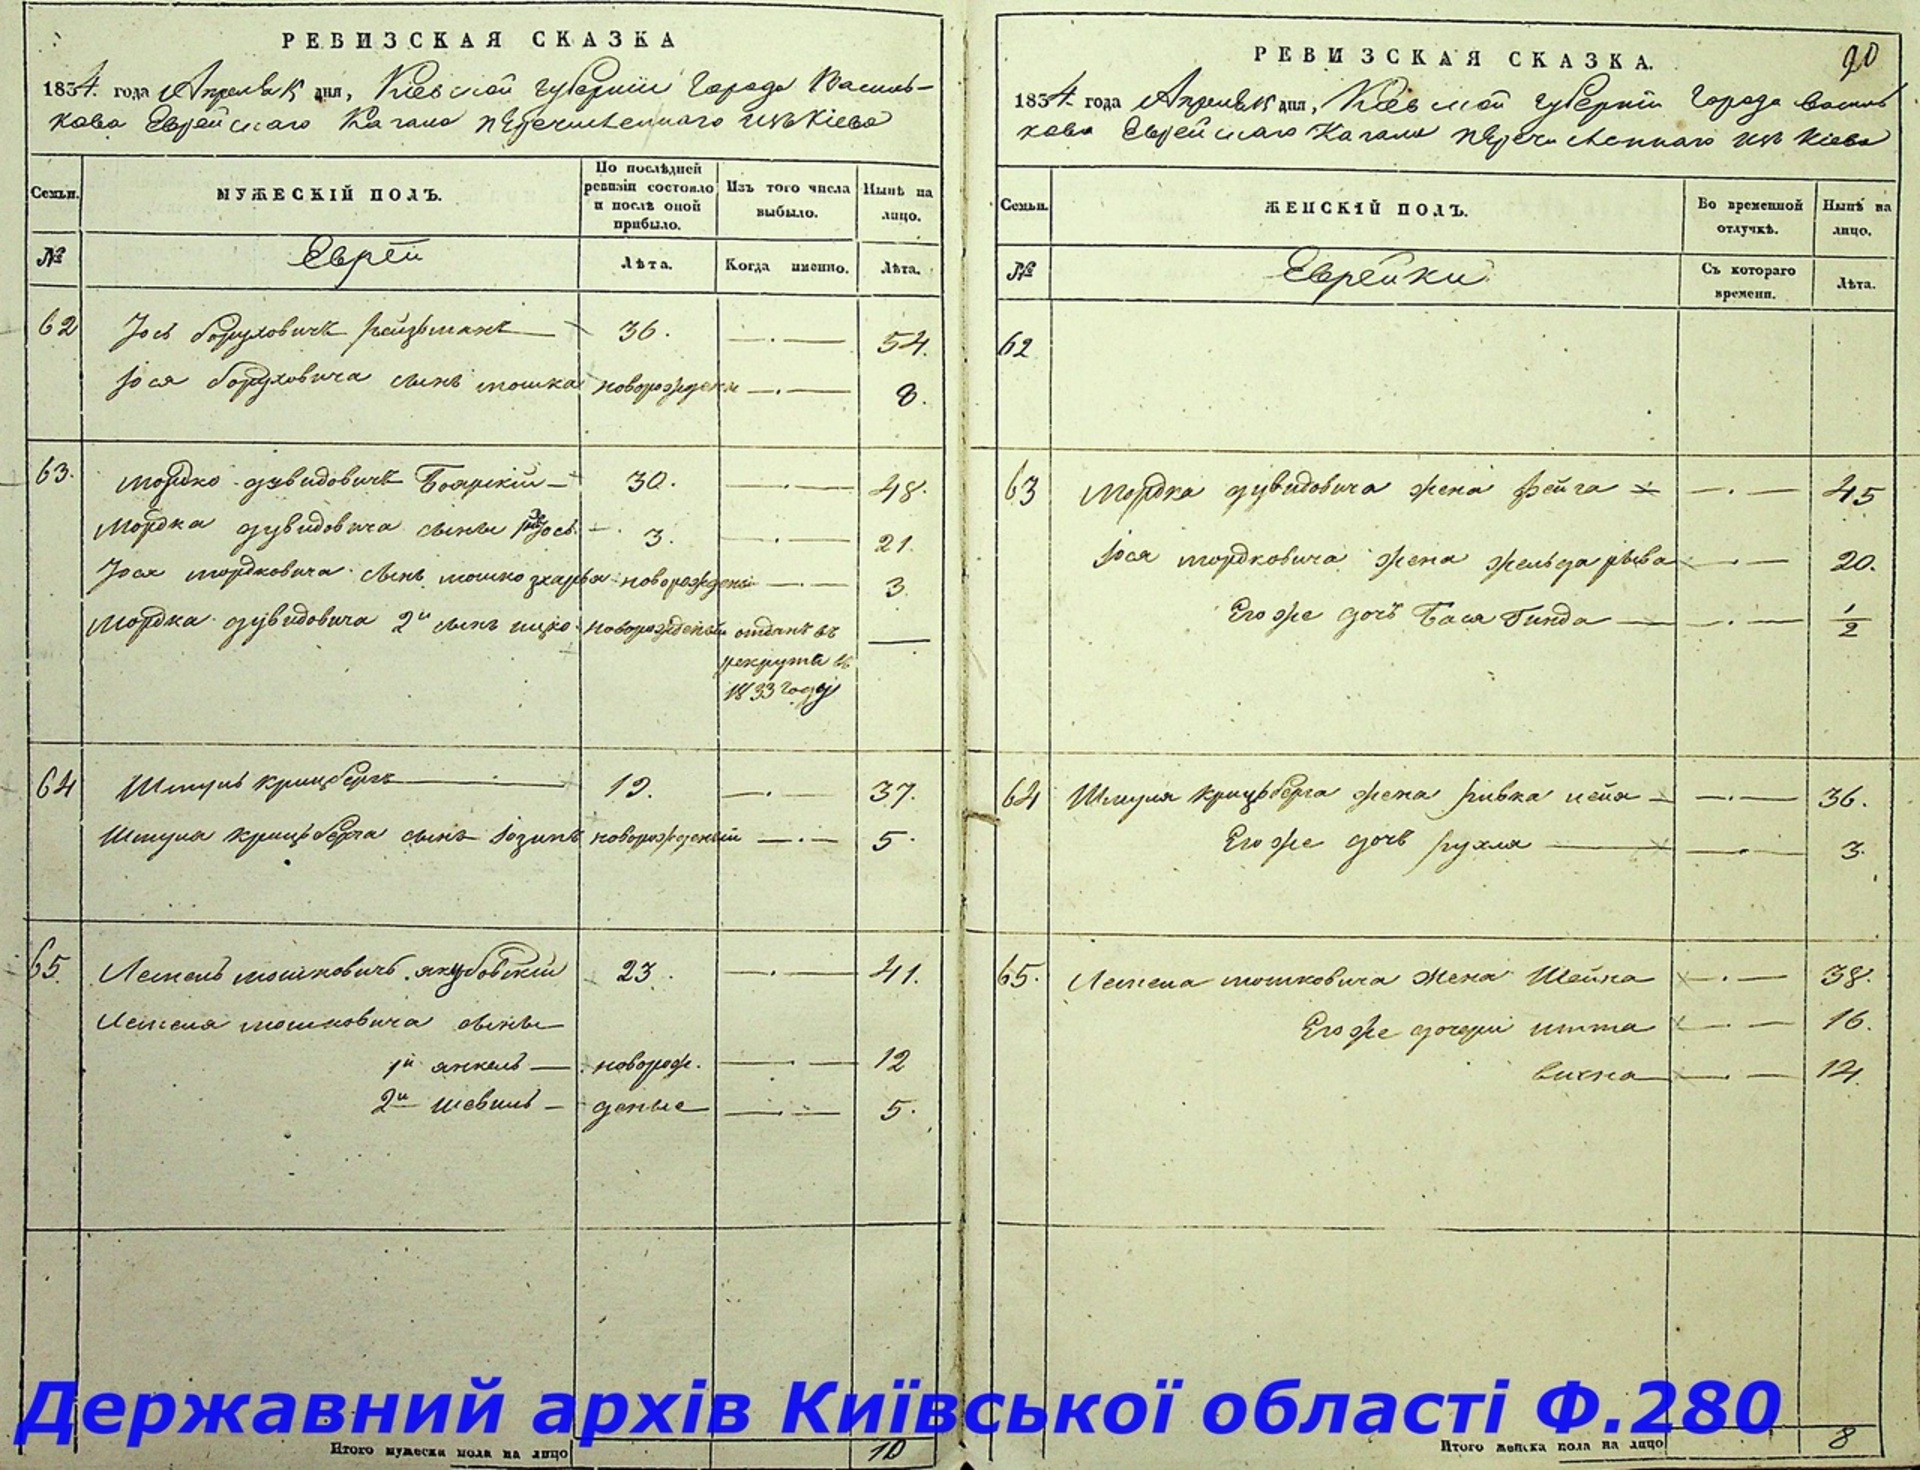 РЕВИЗСКАЯ СКАЗКА
1834 года Апреля дня, Кіевской губерніи Города Василь-
кова Еврейскаго Кагала перечисленнаго изъ Кіева
Семьи.
МУЖЕСКІЙ ПОЛЪ.
По послѣдней ревизіи состояло и послѣ оной прибыло.
Изъ того числа выбыло.
Нынѣ на лицо.
№
Евреи
Лѣта.
Когда именно.
Лѣта.
62 Іось Боруховичъ Рейзманъ 36. 54.
Іося Боруховича сынъ Мошка новорожденн 8.
63. Мордко Дувидовичъ Боярскій 30. 48.
Мордка Дувидовича сыны Іось 3. 21.
Іося Мордковича сынъ Мошко новорожденый 3
Мордка Дувидовича 2й сынъ Ицко новорожденый отданъ въ
рекруты въ
1833 году
64 Шмуль Крицбергъ 19. 37.
Шмуля Крицберга сынъ новорожденый 5.
65. Лемель Мошковичъ Якубовскій 23. 41.
Лемеля Мошковича сыны
1й Янкель новорож. 12
2й Шевель деные 5.
Итого мужеска пола на лицо 10
РЕВИЗСКАЯ СКАЗКА.
20
1834 года Апреля дня, Кіевской губерніи Города Василь
кова Еврейскаго Кагала перечисленнаго изъ Кіева
Семьи.
ЖЕНСКІЙ ПОЛЪ.
Во временной отлучкѣ.
Нынѣ на лицо.
№
Еврейки
Съ котораго времени.
Лѣта.
62
63 Мордка Дувидовича жена Фейга 45
Іося Мордковича жена Жельда Рыва 20.
Его же дочь Бася Гинда 1/2
64 Шмуля Крицберга жена Ривка Лея 36.
Его же дочь Рухля 3.
65. Лемеля Мошковича жена Шейна 38.
Его же дочери Итта 16.
Вихна 14.
Итого женска пола на лицо 8
Державний архів Київської області Ф.280